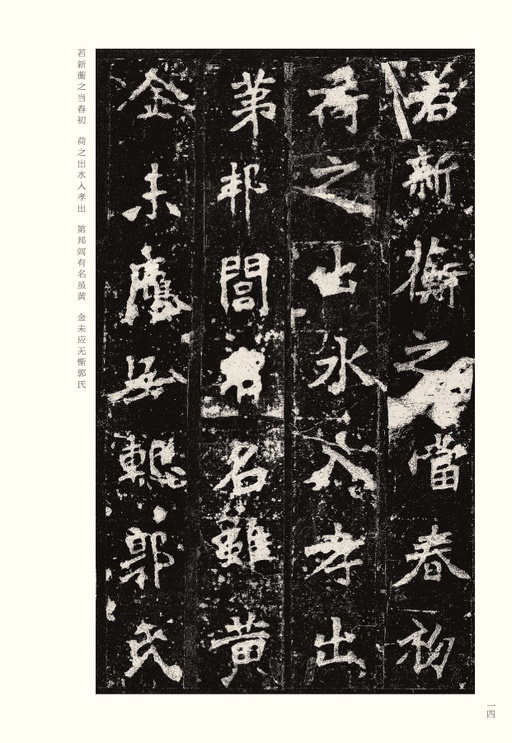 若新蘅之当春初 荷之出水入孝出 第邦闾有名虽黄 金未应无惭郭氏
若新蘅之當春初
荷之出水入孝出
第邦閭有名雖黃
金未應無慙郭氏
一四